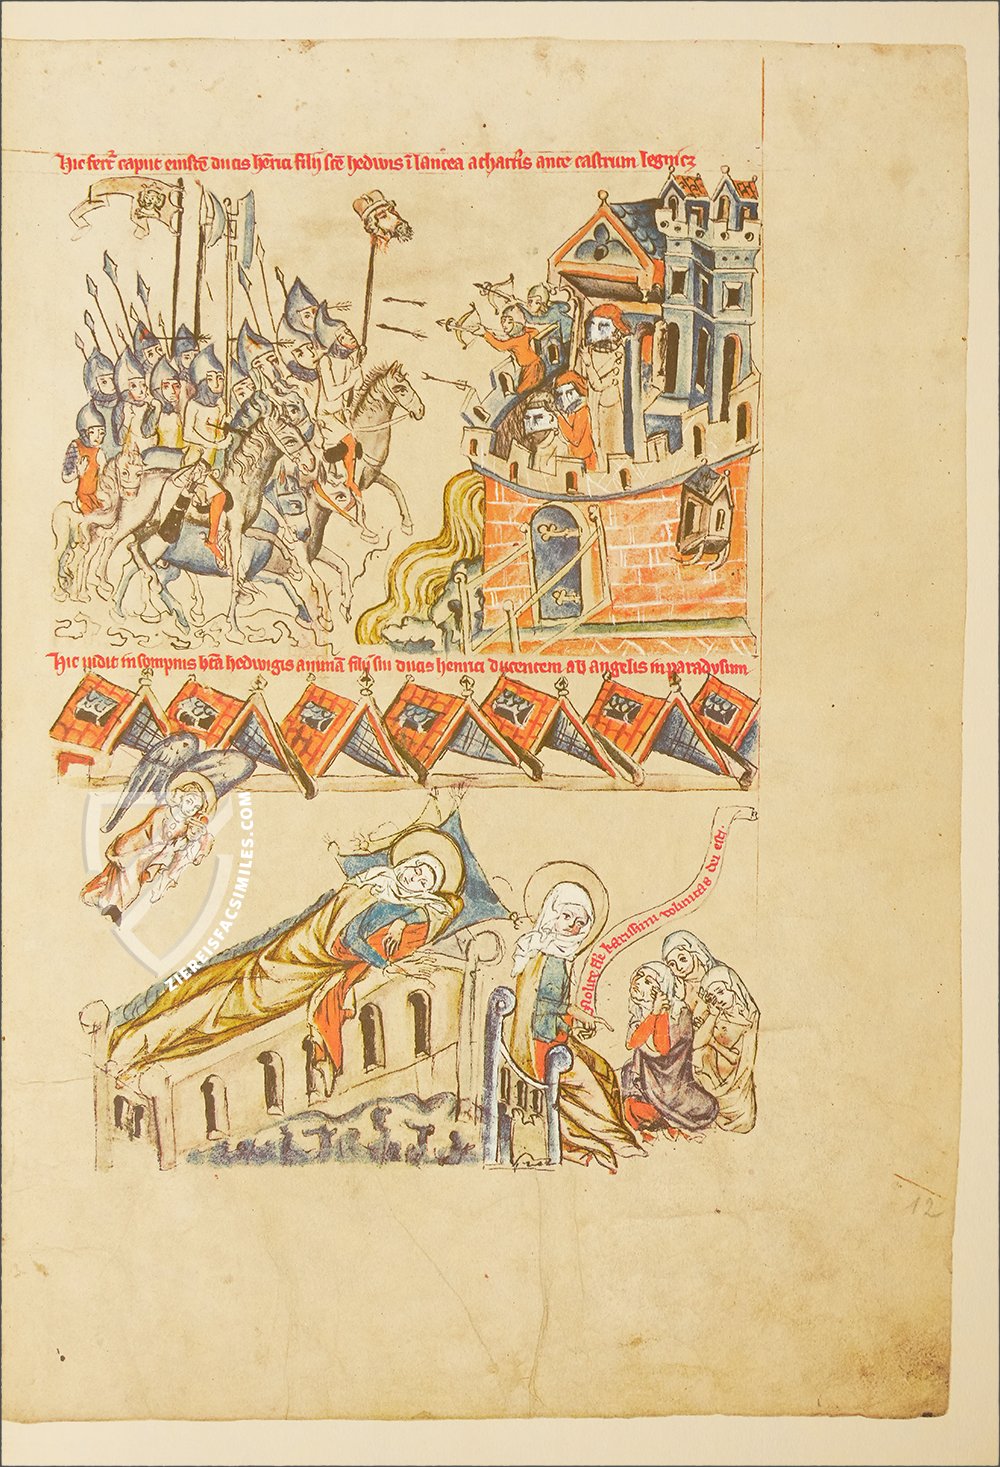 Hic fert᷒ caput eiusdē ducis hēnrici filij scē hedwis ī lancea a thartis ante castrum legnicz
Hic vidit in sompnis bt̄a hedwigis animā filij sui ducis henrici ducentem ab angelis in paradysum
Nolite flē karissimi voluntas dei est
ZIEREISFACSIMILES.COM
12